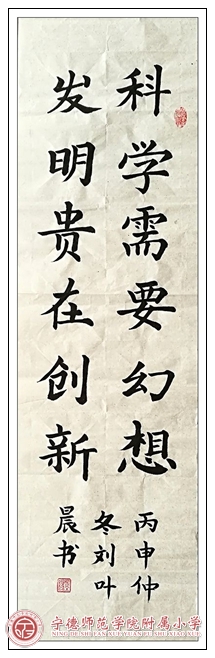 科学需要幻想
发明贵在创新
丙申仲
冬刘叶
晨书
宁德师范学院附属小学
NING DE SHI FAN XUE YUAN FU SHU XIAO XUE